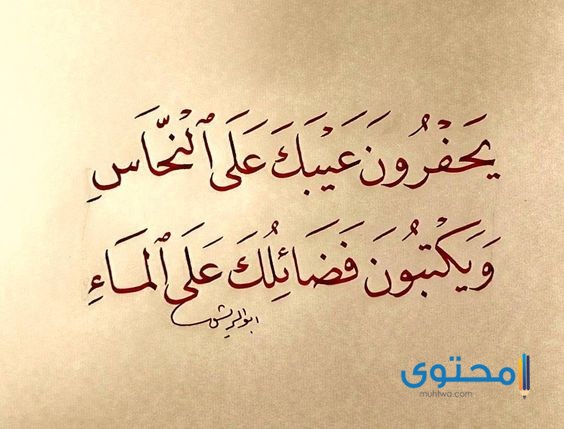 يَحْفُرُونَ عَيْبَكَ عَلَى ٱلْنَّحَّاسِ
وَيَكْتبُونَ فَضَائِلُكَ عَلَى ٱلمَاءِ
ابوالريش
محتوى
muhtwa.com